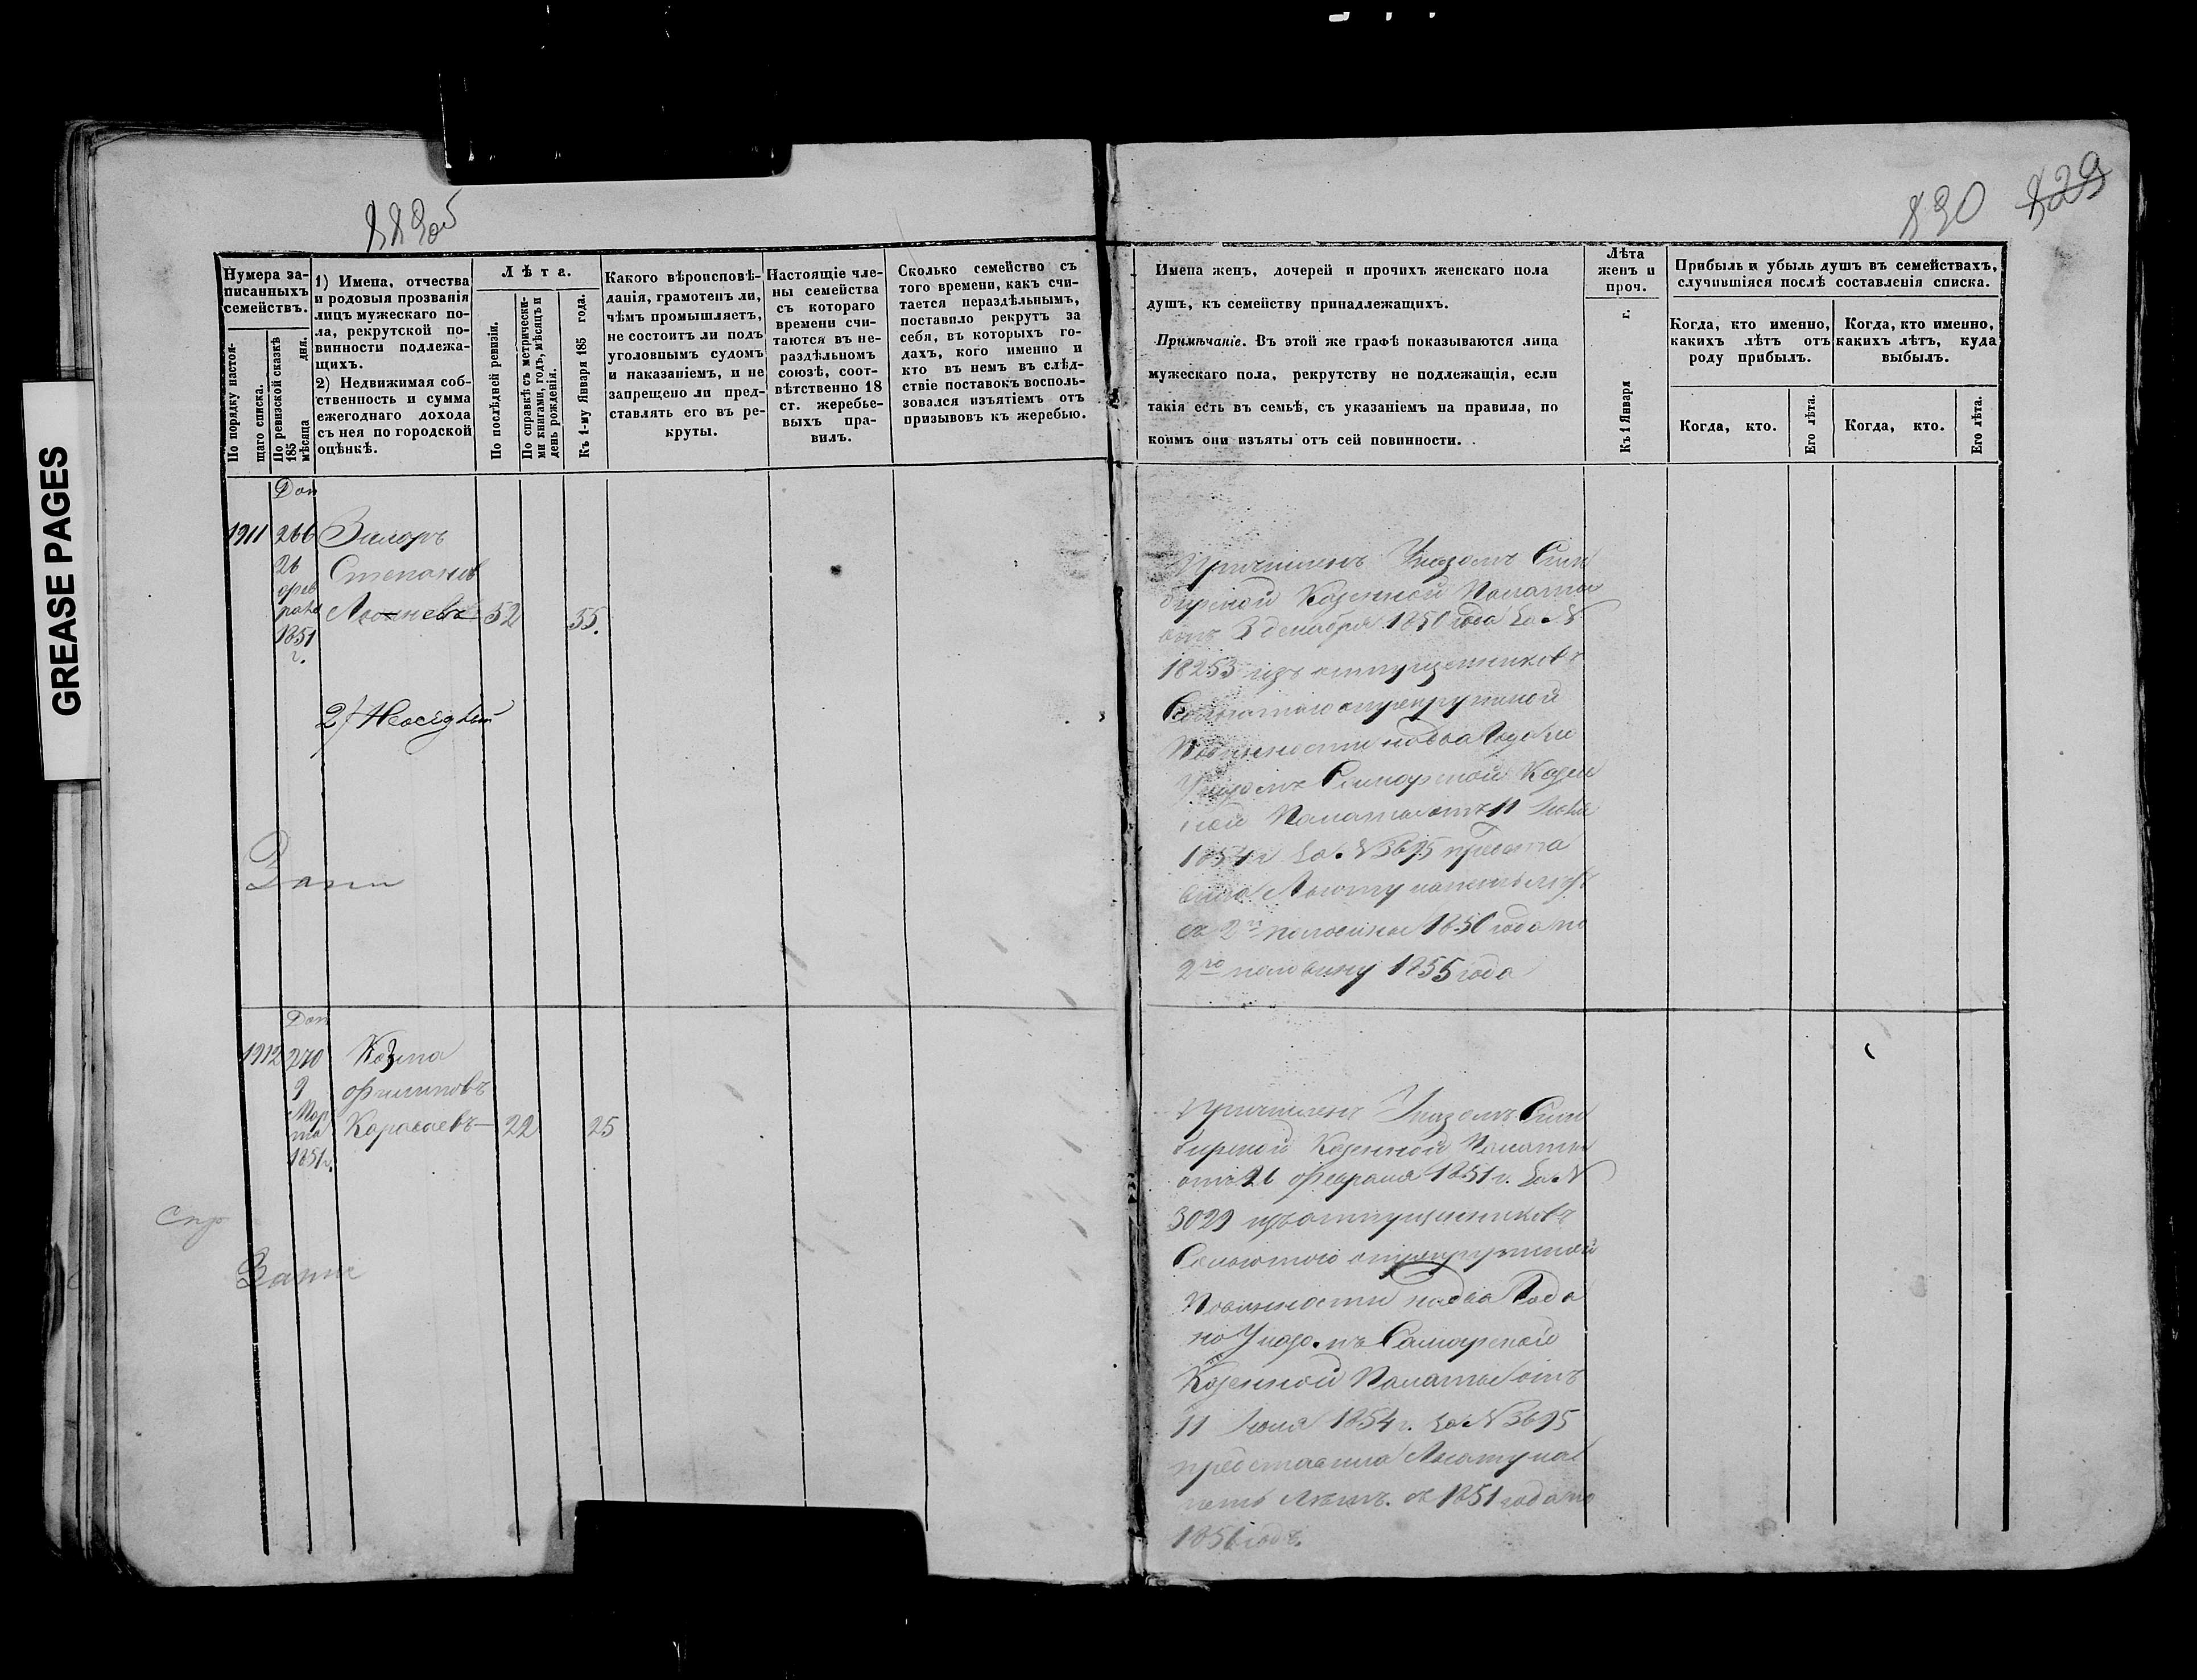 GREASE PAGES
830 829
Нумера записанныхъ семействъ.
По порядку настоящаго списка.
По ревизской сказкѣ 185 мѣсяца дня.
1) Имена, отчества
и родовыя прозванія
лицъ мужескаго по-
ла, рекрутской по-
винности подлежа-
щихъ.
2) Недвижимая соб-
ственность и сумма
ежегоднаго дохода
съ нея по городской
оцѣнкѣ.
Лѣта.
По послѣдней ревизіи.
По справкѣ съ метрически-
ми книгами, годъ, мѣсяцъ и
день рожденія.
Къ 1-му Января 185 года.
Какого вѣроисповѣ-
данія, грамотенъ ли,
чѣмъ промышляетъ,
не состоитъ ли подъ
уголовнымъ судомъ
и наказаніемъ, и не
запрещено ли пред-
ставлять его въ ре-
круты.
Настоящіе чле-
ны семейства
съ котораго
времени счи-
таются въ не-
раздѣльномъ
союзѣ, соот-
вѣтственно 18
ст. жеребье-
выхъ пра-
вилъ.
Сколько семейство съ
того времени, какъ счи-
тается нераздѣльнымъ,
поставило рекрутъ за
себя, въ которыхъ го-
дахъ, кого именно и
кто въ немъ въ слѣд-
ствіе поставокъ восполь-
зовался изъятіемъ отъ
призывовъ къ жеребью.
Имена женъ, дочерей и прочихъ женскаго пола
душъ, къ семейству принадлежащихъ.
Примѣчаніе. Въ этой же графѣ показываются лица
мужескаго пола, рекрутству не подлежащія, если
такія есть въ семьѣ, съ указаніемъ на правила, по
коимъ они изъяты отъ сей повинности.
Лѣта
женъ и
проч.
Къ 1 Января г.
Прибыль и убыль душъ въ семействахъ,
случившіяся послѣ составленія списка.
Когда, кто именно,
какихъ лѣтъ отъ
роду прибылъ.
Когда, кто именно,
какихъ лѣтъ, куда
выбылъ.
Когда, кто.
Его лѣта.
Когда, кто.
Его лѣта.
Доп
1911 266
26
фев
раля
1851
г.
Степановъ
52 55.
2)
Причисленъ Указомъ Сим
бирской Казенной Палаты
отъ 3 декабря 1850 года за №
18253 изъ отпущенниковъ
Повинности на два Года и
Указомъ Самарской Казен
ной Палаты отъ 11 Июля
1854 г. за № 3695 предста
влено Льготу на пять лѣтъ
съ 2й половины 1850 года по
2ю половину 1855 года
Доп
1912 270
9
Мар
та
1851 г.
Козма
Филиповъ
Караваевъ 22 25
Причисленъ Указомъ Сим
бирской Казенной Палаты
отъ 26 Февраля 1851 г. за №
3029 изъ отпущенниковъ
Повинности на два Года
но Указомъ Самарской
Казенной Палаты отъ
11 Июля 1854 г. за № 3695
представлена Льгота на
пять лѣтъ. съ 1851 года по
1856 годъ.